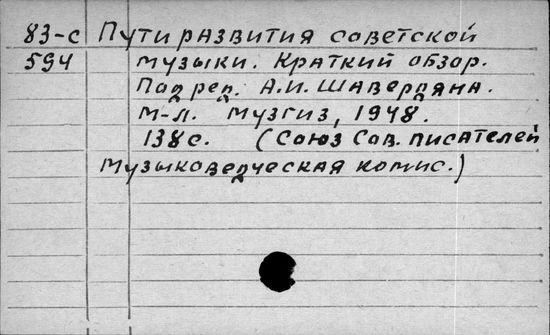 83-с Пути развития советской
594 музыки. Краткий обзор.
Под ред. А.И. Шавердяна.
М-л. Музгиз, 1948.
138с. (Союз Сов. писателей
Музыковедческая комис.)